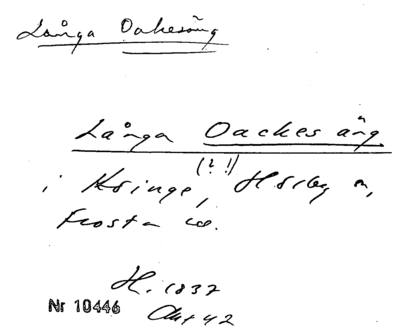 Långa Oakesäng
Långa Oackes äng
(?!)
i Kringe, Hörby sn,
Frosta hd.
H. 1837
Akt 42
Nr 10446